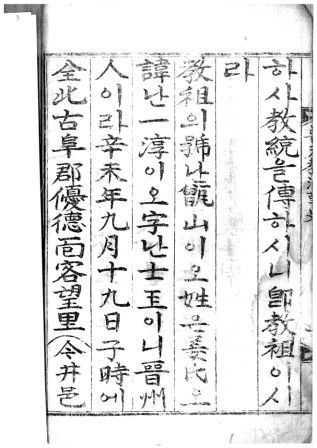 하사敎統을傳하시니卽敎祖이시
라
敎祖의號난甑山이오姓은姜氏오
諱난一淳이오字난士玉이니晉州
人이라辛未年九月十九日子時에
全北古阜郡優德面客望里(今井邑